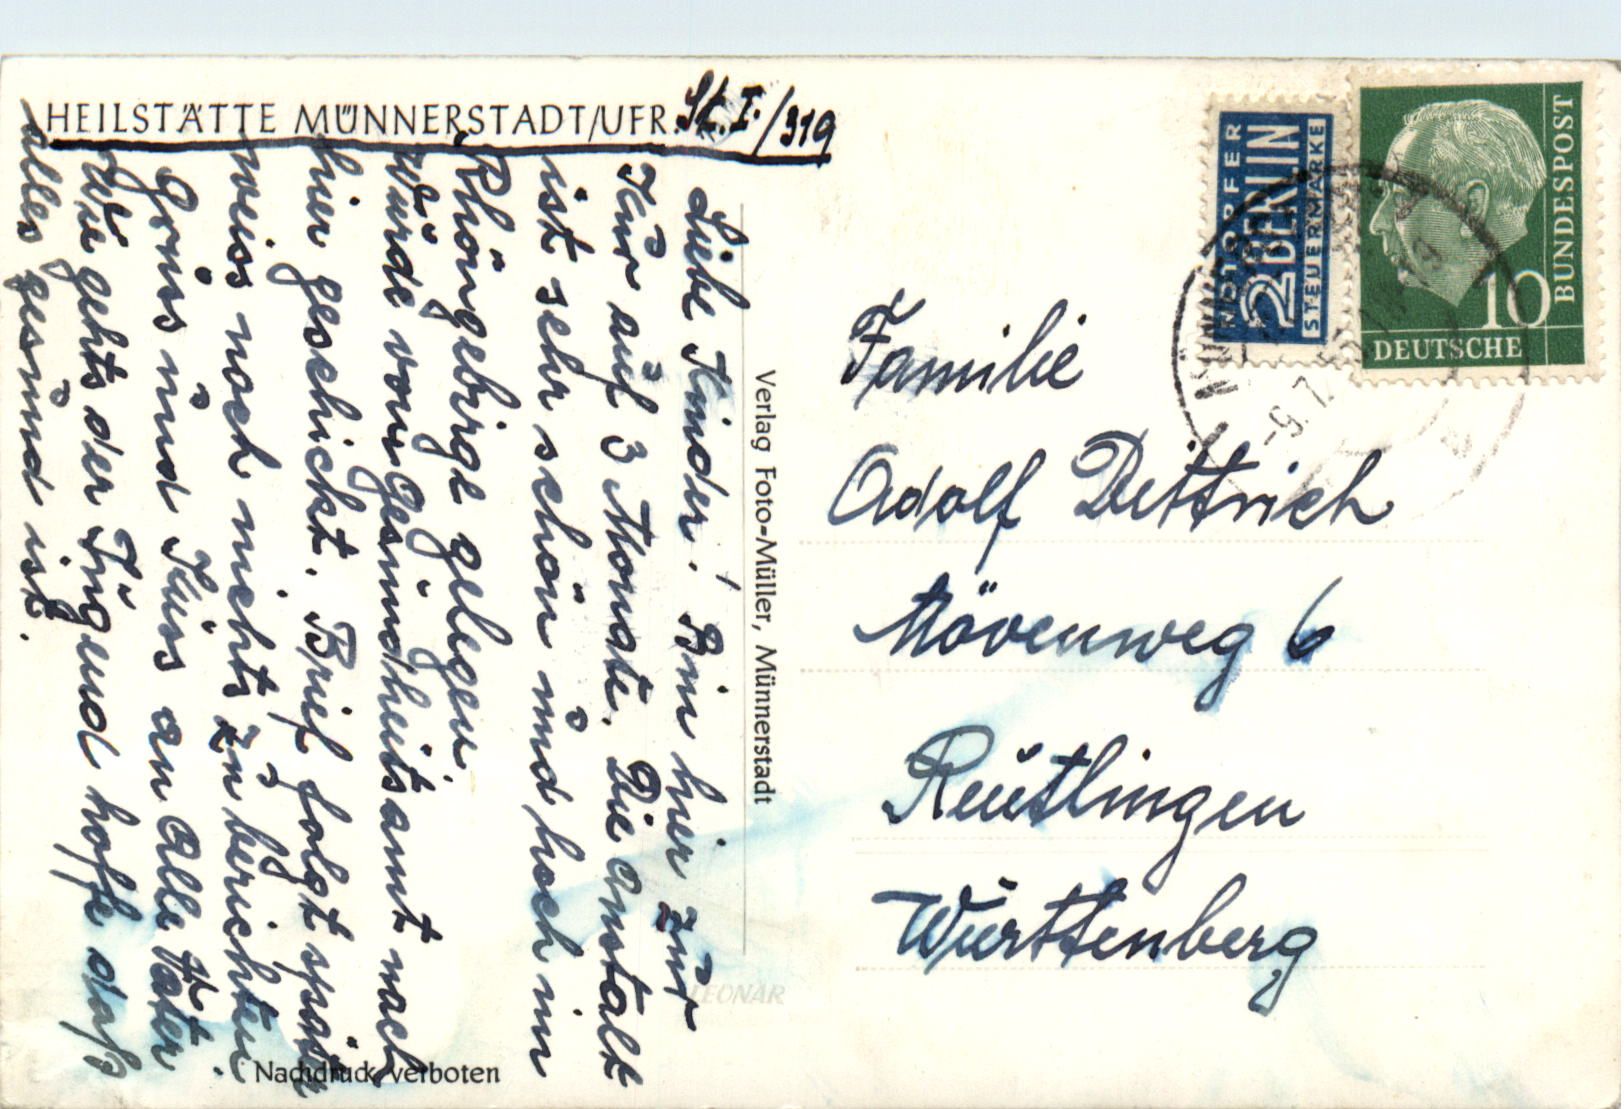 HEILSTÄTTE MÜNNERSTADT/UFR. St. I./319
Liebe Kinder! Bin hier zur
Kur auf 3 Monate. Die Anstalt
ist sehr schön und hoch im
Rhöngebirge gelegen.
Würde vom Gesundheitsamt nach
hier geschickt. Brief folgt später
weiss noch nichts zu berichten.
Gruss und Kuss an Alle Vater
Wie gehts der Jugend hoffe daß
alles gesund ist.
Nachdruck verboten
Verlag Foto-Müller, Münnerstadt
LEONAR
NOTOPFER
2 BERLIN
STEUERMARKE
10
DEUTSCHE
BUNDESPOST
-9.7.
Familie
Adolf Dittrich
Mövenweg 6
Reutlingen
Württenberg